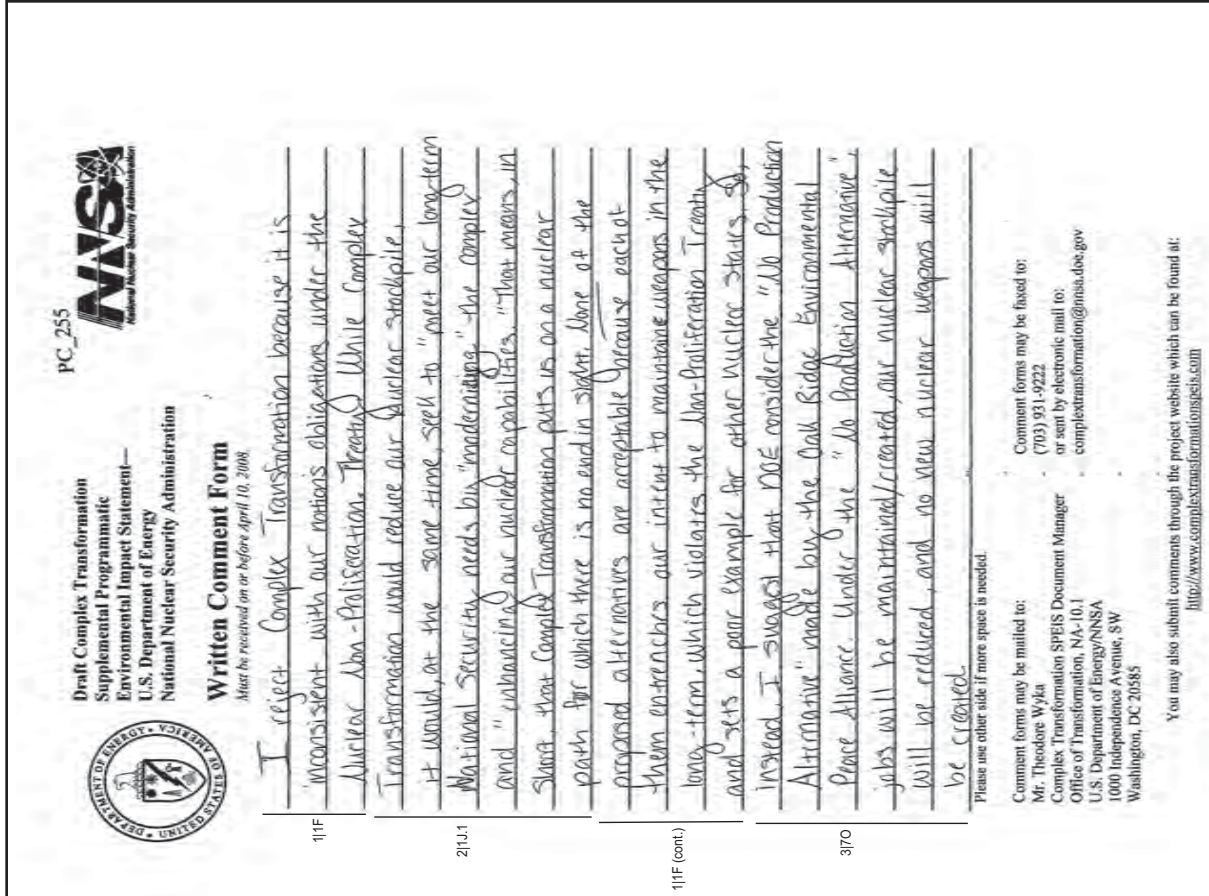 PC_255
DEPARTMENT OF ENERGY • UNITED STATES OF AMERICA
Draft Complex Transformation
Supplemental Programmatic
Environmental Impact Statement—
U.S. Department of Energy
National Nuclear Security Administration
NNSA
National Nuclear Security Administration
Written Comment Form
Must be received on or before April 10, 2008.
I reject Complex Transformation because it is
inconsisent with our nations obligations under the
Nuclear Non-Proliferation Treaty. While Complex
Transformation would reduce our nuclear stockpile,
it would, at the same time, seek to "meet our long-term
National security needs by "modernizing" the complex
and "enhancing our nuclear capabilities." That means, in
short, that Complex Transformation puts us on a nuclear
path for which there is no end in sight. None of the
proposed alternatives are acceptable because each of
them entrenches our intent to maintaine weapons in the
long-term, which violates the Non-Proliferation Treaty
and sets a poor example for other nuclear states. So,
instead, I suggest that DOE consider the "No Production
Alternative" made by the Oak Ridge Environmental
Peace Alliance Under the "No Production Alternative",
jobs will be maintained/created, our nuclear stockpile
will be reduced, and no new nuclear weapons will
be created.
1|1F
2|1J.1
1|1F (cont.)
3|7O
Please use other side if more space is needed.
Comment forms may be mailed to:
Mr. Theodore Wyka
Complex Transformation SPEIS Document Manager
Office of Transformation, NA-10.1
U.S. Department of Energy/NNSA
1000 Independence Avenue, SW
Washington, DC 20585
Comment forms may be faxed to:
(703) 931-9222
or sent by electronic mail to:
complextransformation@nnsa.doe.gov
You may also submit comments through the project website which can be found at:
http://www.complextransformationspeis.com